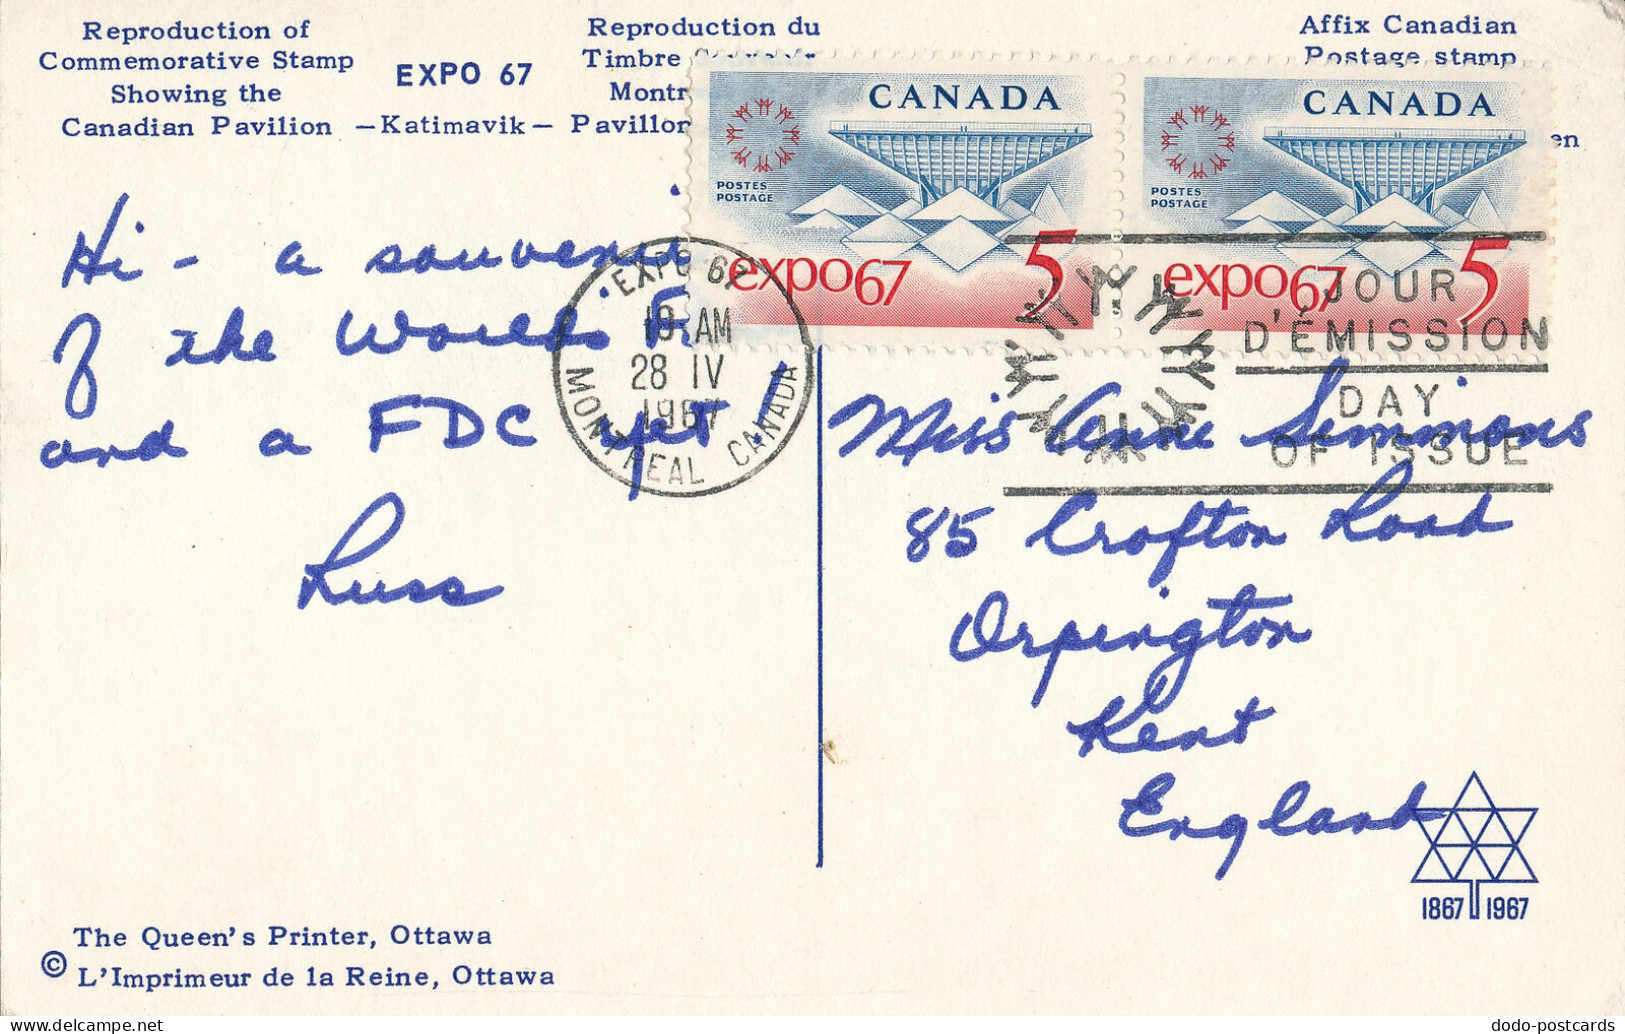 Reproduction of
Commemorative Stamp
Showing the
Canadian Pavilion
EXPO 67
—Katimavik—
Reproduction du
Timbre
Pavillon
Affix Canadian
Postage stamp
en
CANADA
POSTES
POSTAGE
expo67
5
CANADA
POSTES
POSTAGE
expo67
5
EXPO 67
AM
28 IV
1967
MONTREAL CANADA
JOUR
D'ÉMISSION
DAY
OF ISSUE
Hi - a souvenir
of the Worlds
and a FDC
Russ
Miss Anne Simmons
85 Crofton Road
Orpington
Kent
England
1867 1967
The Queen's Printer, Ottawa
© L'Imprimeur de la Reine, Ottawa
dodo-postcards